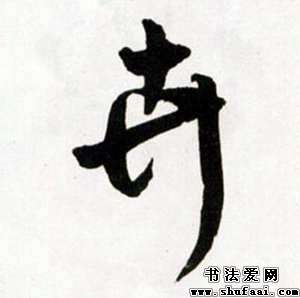 卉
书法爱网
www.shufaai.com